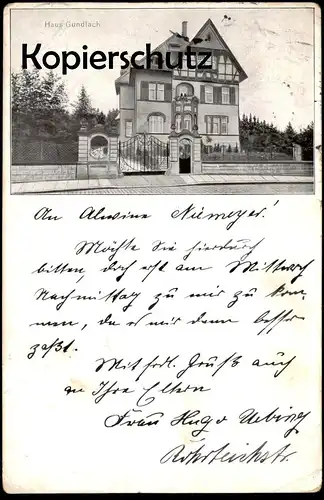 Haus Gundlach
Kopierschutz
An Alwine Niemeyer!
Möchte Sie hierdurch
bitten, doch erst am Mittwoch
Nachmittag zu mir zu kom-
men, da es mir dann besser
paßt.
Mit frdl. Gruß auch
an Ihre Eltern
Frau Hugo Uebing